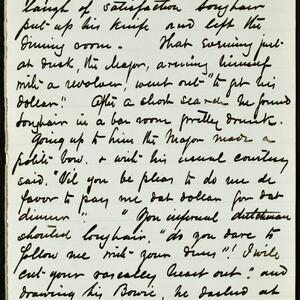 laugh of satisfaction Longhair
put up his knife and left the
dinning room. — That evening just
at dusk, the Major, arming himself
with a revolver, went out "to get his
dollar". After a short search he found
Longhair in a bar room pretty drunk.
Going up to him the Major made a
polite bow, & with his usual courtesy
said, "Vil you be pleas to do me de
favor to pay me dat dollar for dat
dinner". "You infernal dutchman
shouted Longhair, "do you dare to
follow me with your duns"! I will
cut your rascally heart out! and
drawing his Bowie, he dashed at